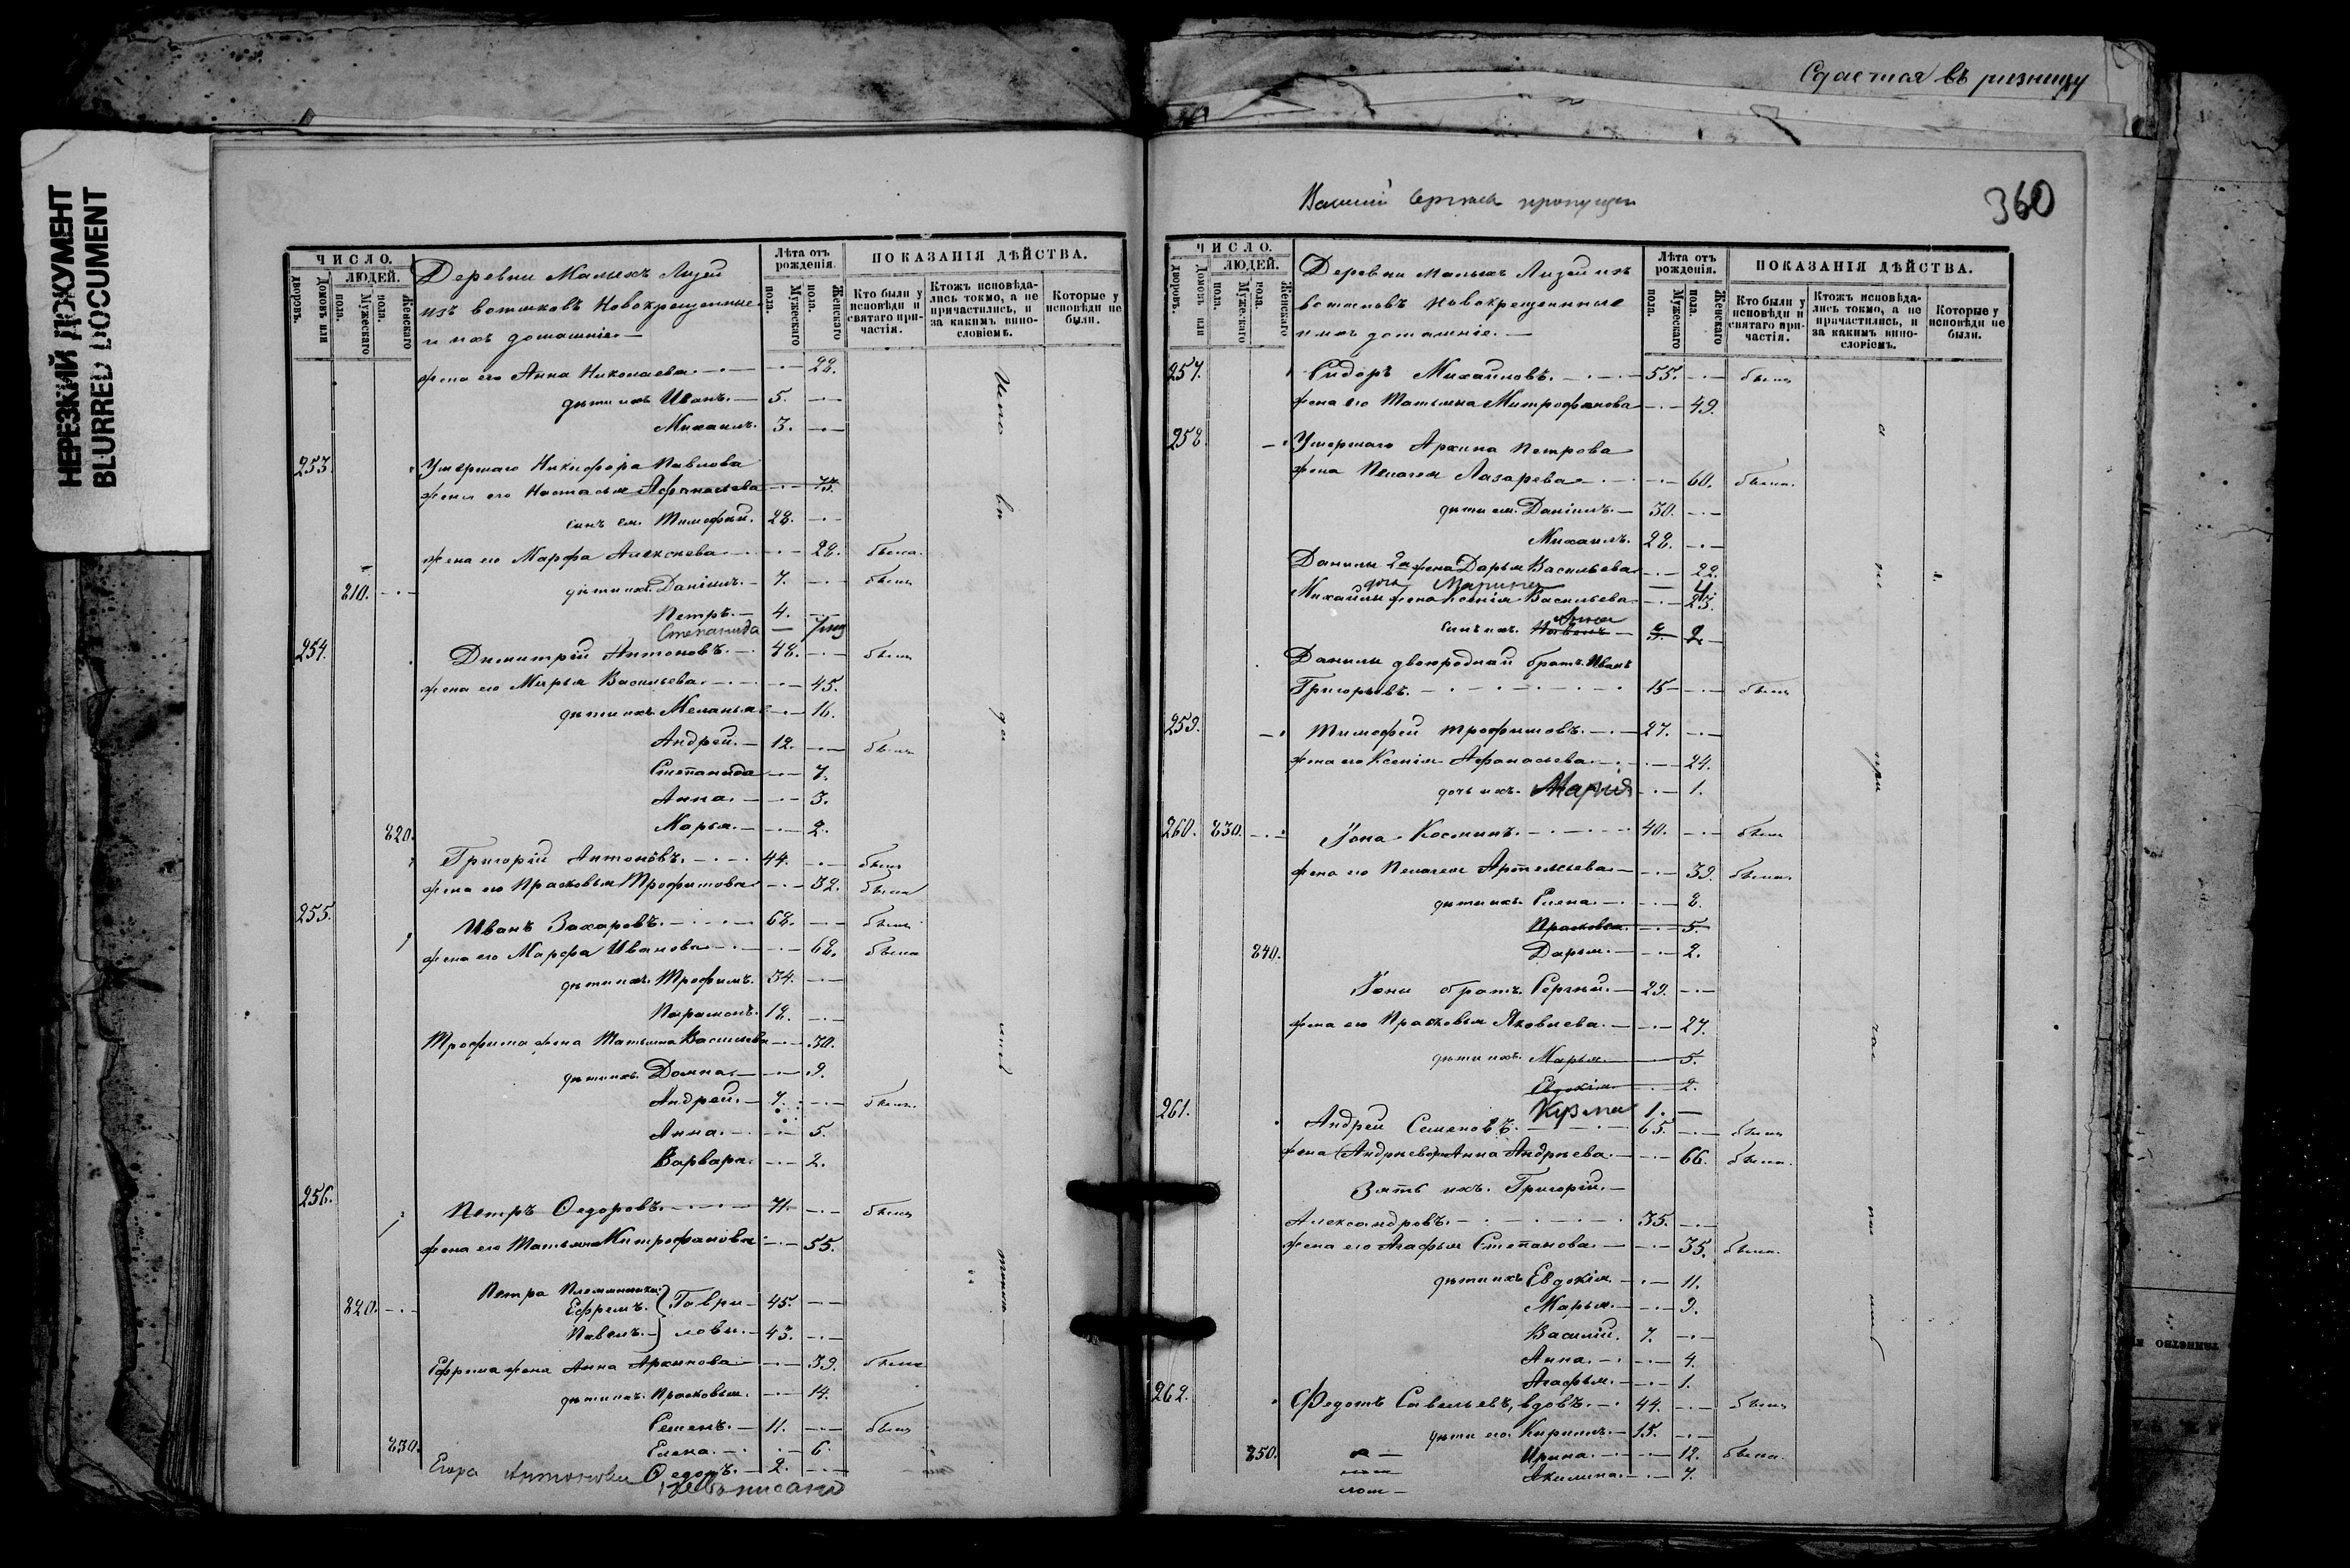 Сдается въ ризницу
НЕРЕЗКИЙ ДОКУМЕНТ
BLURRED DOCUMENT
ЧИСЛО.
ЛЮДЕЙ.
Дворовъ.
Домовъ или
Мужескаго пола.
Женскаго пола.
Деревни Малыхъ Лизей
изъ вотяковъ Новокрещенные
и ихъ домашніе.
Лѣта отъ рожденія.
Мужескаго пола.
Женскаго пола.
ПОКАЗАНІЯ ДѢЙСТВА.
Кто были у исповѣди и святаго причастія.
Ктожъ исповѣдались токмо, а не причастились, и за какимъ винословіемъ.
Которые у исповѣди не были.
жена его Анна Николаева. — 28.
дѣти ихъ Иванъ. — 5.
Михаилъ. 3.
253. Умершаго Никифора Павлова
жена его Настасья Афанасьева — 73.
сынъ ея Тимофей. 28.
жена его Марфа Алексѣева — 28. была.
810. дѣти ихъ Даніилъ. — 7. былъ
Петръ. — 4.
Степанида —
254. Димитрій Антоновъ. — 48. былъ
жена его Марья Васильева. — 45.
дѣти ихъ Меланья — 16.
Андрей. — 12. былъ
Степанида — 7.
Анна. — 3.
820. Марья. — 2.
Григорій Антоновъ. — 44. былъ
жена его Прасковья Трофимова — 32. была
255. Иванъ Захаровъ. — 68. былъ
жена его Марфа Иванова — 68. была
дѣти ихъ Трофимъ. 34.
Парамонъ. 18.
Трофима жена Татьяна Васильева — 30.
дѣти ихъ Домна. — 9.
Андрей. — 7. былъ.
Анна. — 5.
Варвара. — 2.
256. Петръ Ѳедоровъ. — 71. былъ
жена его Татьяна Митрофанова — 55.
Петра племянники
820. Ефремъ. } Гаври- 45.
Павелъ. } ловы. — 43.
Ефрема жена Анна Архипова — 39. была
дѣти ихъ Прасковья. — 14.
Семенъ. — 11. былъ
830. Елена. — 6.
Егора Антоновы Ѳедоръ. — 2.
360
ЧИСЛО.
ЛЮДЕЙ.
Дворовъ.
Домовъ или
Мужескаго пола.
Женскаго пола.
Деревни Малыхъ Лизей изъ
вотяковъ Новокрещенные
и ихъ домашніе. —
Лѣта отъ рожденія.
Мужескаго пола.
Женскаго пола.
ПОКАЗАНІЯ ДѢЙСТВА.
Кто были у исповѣди и святаго причастія.
Ктожъ исповѣдались токмо, а не причастились, и за какимъ винословіемъ.
Которые у исповѣди не были.
257. Сидоръ Михаиловъ. — 55. былъ
жена его Татьяна Митрофанова — 49.
258. Умершаго Архипа Петрова
жена Пелагея Лазарева — 60. была.
дѣти ея Даніилъ. — 30.
Михаилъ. 28.
Данилы 2я жена Дарья Васильева — 22.
дочь Марина — 4
Михаилы жена Ксенія Васильева — 23.
сынъ ихъ
Анна — 2
Данилы двоюродный братъ Иванъ
Григорьевъ. — 15 — былъ
259. Тимофей Трофимовъ. — 27.
жена его Ксенія Афанасьева. — 24.
дочь ихъ Марія — 1.
260. 830. Іона Косминъ. — 40. былъ
жена его Пелагея Артемьева — 39. была.
дѣти ихъ Елена. — 8.
Прасковья. — 5.
840. Дарья. — 2.
Іоны братъ Сергѣй. — 29.
жена его Прасковья Яковлева. — 27.
дѣти ихъ Марья — 5.
Евдокія. — 2.
Кузма 1. —
261. Андрей Семеновъ. — 65. былъ
жена Андреева Анна Андреева. — 66. была.
Зять ихъ Григорій. —
Александровъ. — 35.
жена его Агафья Степанова. — 35. была.
дѣти ихъ Евдокія. — 11.
Марья. — 9.
Василій. 7.
Анна. — 4.
Агафья. — 1.
262. Федотъ Савельевъ, вдовъ. — 44. былъ
дѣти его Кирилъ. — 15.
850. Ирина. — 12. была.
Акилина. — 7.